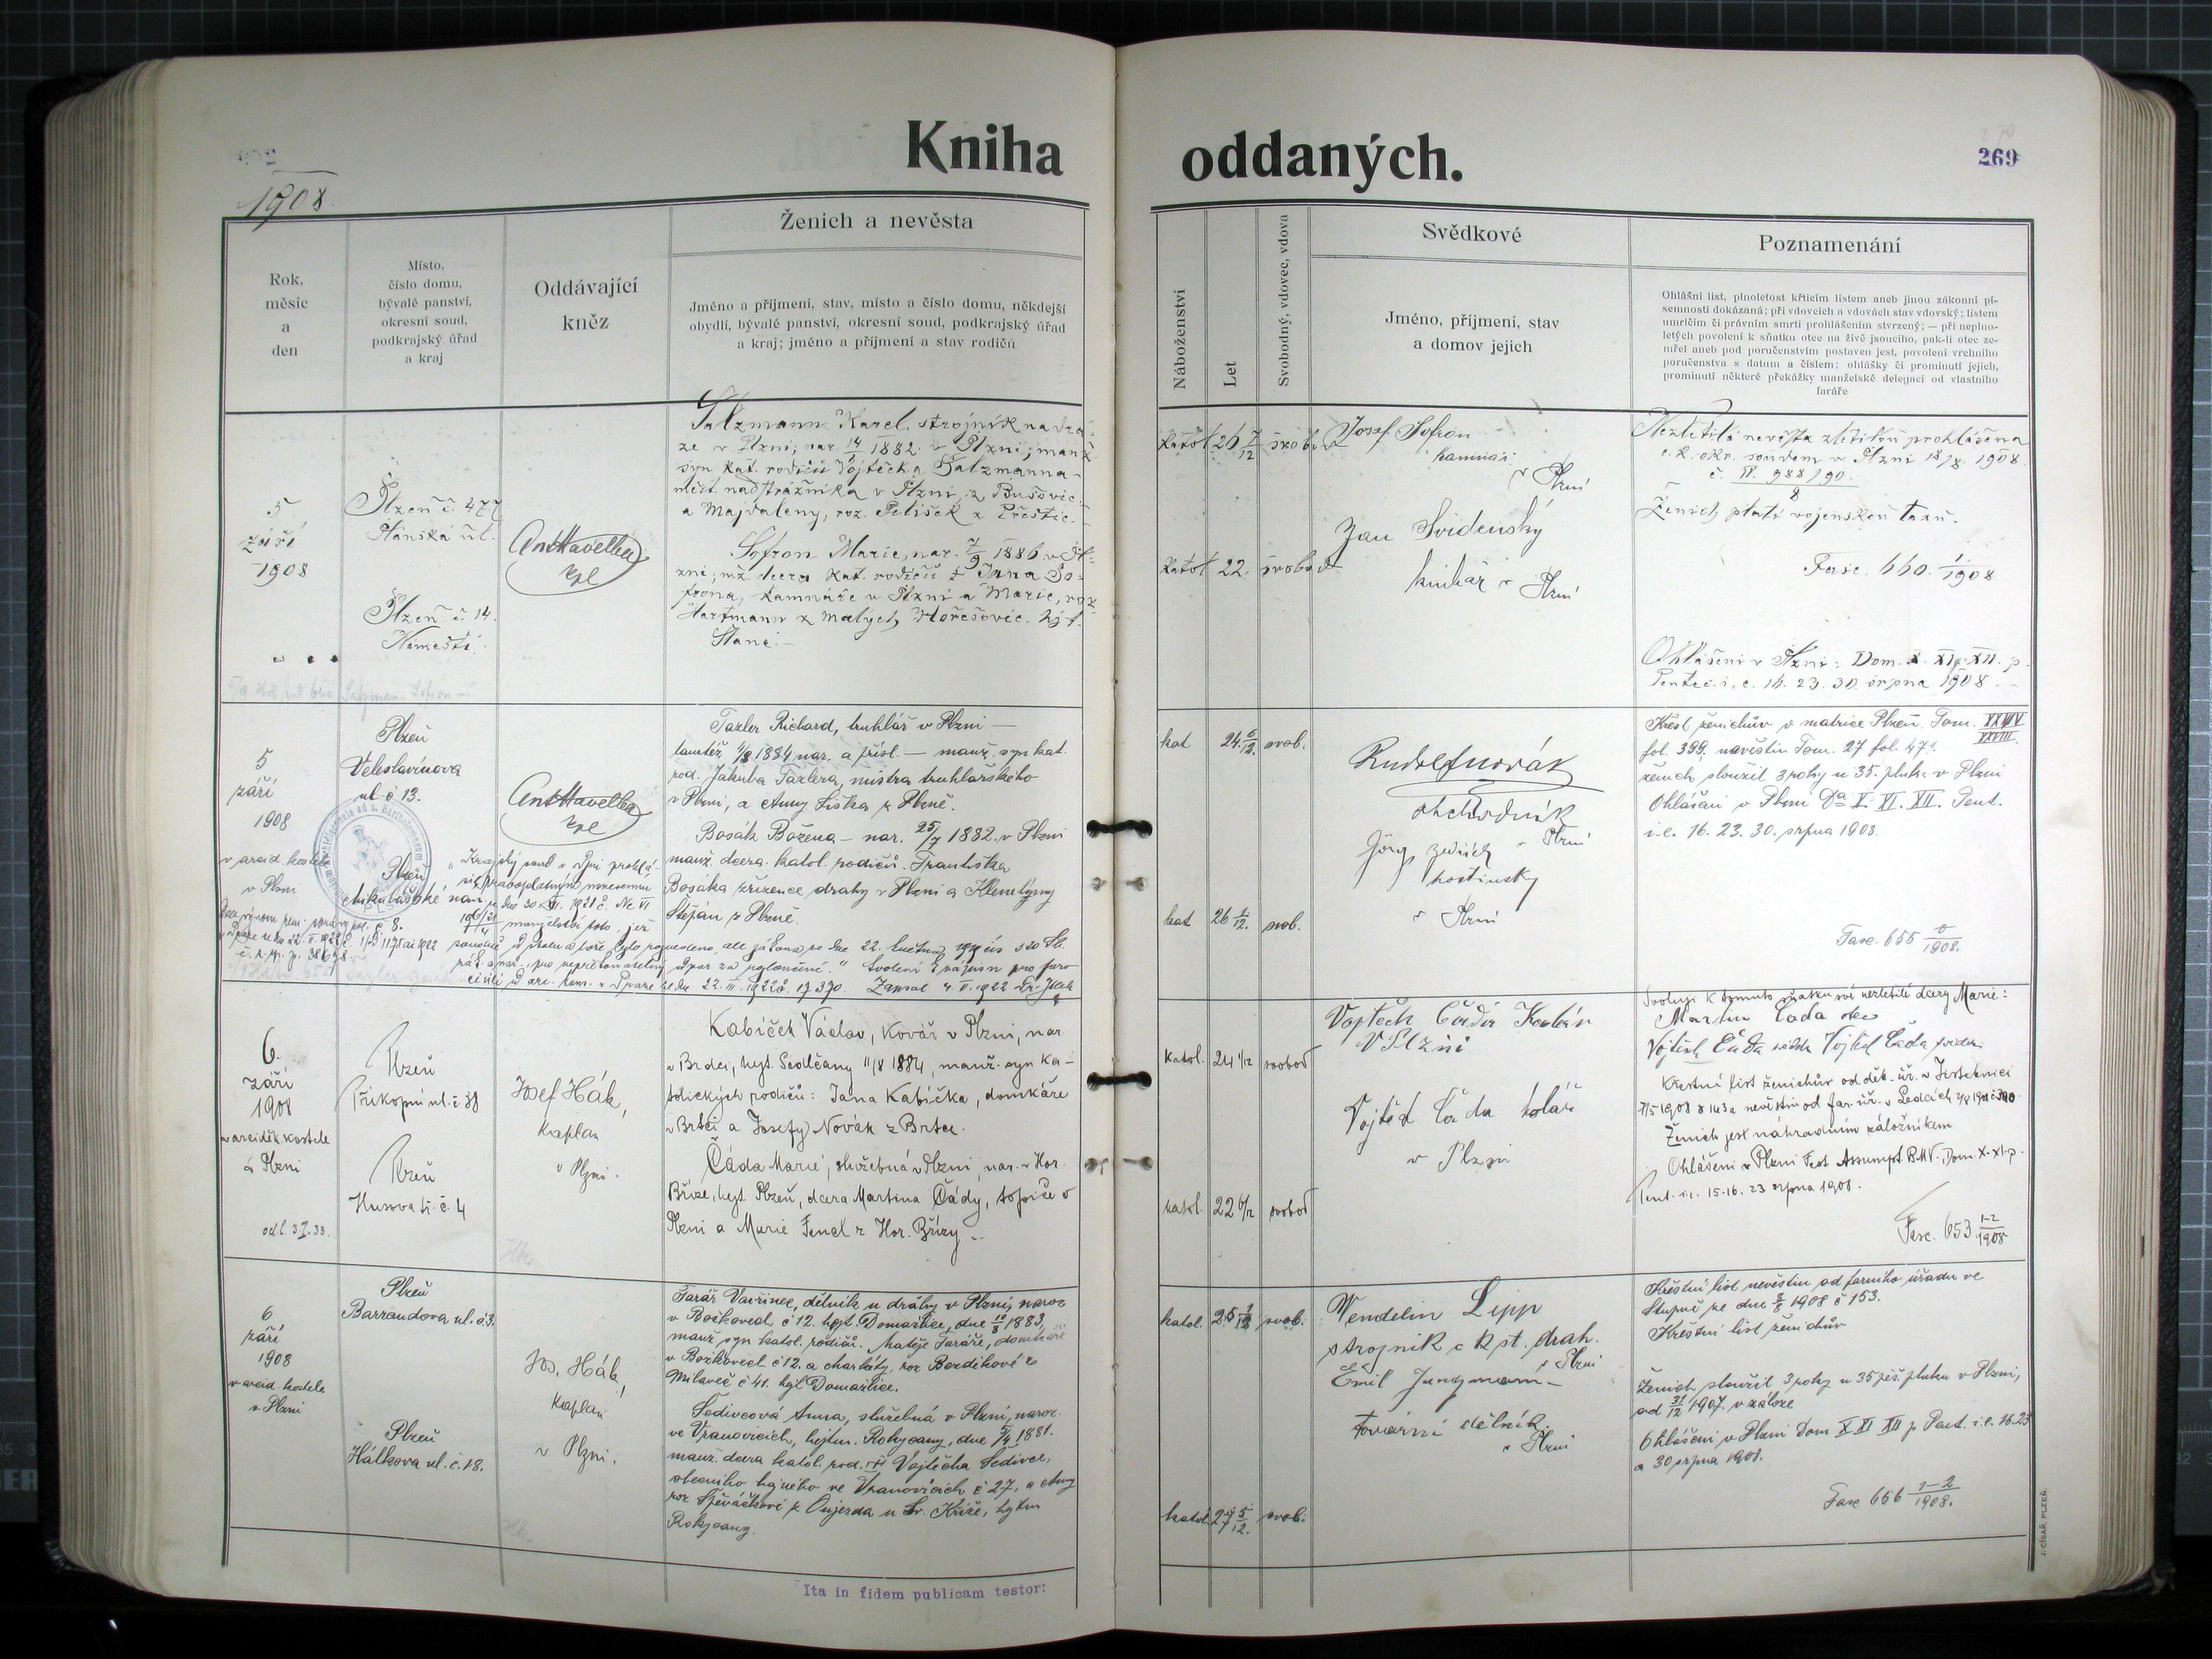 Kniha oddaných.
269
1908
Rok, měsíc a den
Místo, číslo domu, bývalé panství, okresní soud, podkrajský úřad a kraj
Oddávající kněz
Ženich a nevěsta
Jméno a příjmení, stav, místo a číslo domu, někdejší
obydlí, bývalé panství, okresní soud, podkrajský úřad
a kraj; jméno a příjmení a stav rodičů
Náboženství
Let
Svobodný, vdovec, vdova
Svědkové
Jméno, příjmení, stav
a domov jejich
Poznamenání
Ohlášní list, plnoletost křticím listem aneb jinou zákonní pí-
semností dokázaná; při vdovcích a vdovách stav vdovský; listem
umrlčím či právním smrti prohlášením stvrzený; — při neplno-
letých povolení k sňatku otce na živě jsoucího, pak-li otec ze-
mřel aneb pod poručenstvím postaven jest, povolení vrchního
poručenstva s datum a číslem; ohlášky či prominutí jejich,
prominutí některé překážky manželské delegací od vlastního
faráře
5
září
1908
Plzeň č. 477
Plánská ul.
Plzeň č. 14.
Náměstí
Ant Havelka
kpl
Salzmann Karel, strojník na drá-
ze v Plzni, nar. 14/1 1882 v Plzni, manž.
syn kat. rodičů Vojtěcha Salzmanna
měst. nadstrážníka v Plzni, z Bušovic
a Majdaleny, roz. Pelíšek z Přeštic.
Sofron Marie, nar. 7/9 1886 v Pl-
zni, mž. dcera kat. rodičů † Jana So-
frona, kamnáře v Plzni a Marie, roz.
Hartmann z Malých Hořešovic, hjt.
Slané.
katol 26 7/12 svobod
katol 22. svobod
Josef Sofron
kamnář
v Plzni
Jan Svidenský
knihař v Plzni
Nezletilá nevěsta zletilou prohlášena
c. k. okr. soudem v Plzni 18/8 1908
Ženich platí vojenskou taxu.
Fasc. 660. 1/1908
Ohlášeni v Plzni: Dom. X. XI. XII. p.
Pentec. i. e. 16. 23. 30. srpna 1908.
5
září
1908
v arcid. kostele
v Plzni
Plzeň
Veleslavínova
ul č 13.
Plzeň
Mikulášské nám.
č 8.
Ant Havelka
kpl
Tazler Richard, truhlář v Plzni —
tamtéž 4/8 1884 nar. a přísl. — manž. syn kat.
rod. Jakuba Tazlera, mistra truhlářského
v Plzni, a Anny Liška z Plzně.
Bosák Božena — nar. 25/7 1882. v Plzni
manž. dcera katol. rodičů Františka
Bosáka zřízence dráhy v Plzni a Klementýny
Štěpán z Plzně.
kat 24 6/12 svob.
kat 26 1/12. svob.
Rudolf Novák
obchodník
v Plzni
Görg
hostinský
v Plzni
Křest ženichův v matrice Plzeň. Tom.
fol. 399. nevěstin Tom. 27 fol. 471.
ženich sloužil 3 roky u 35. pluku v Plzni
Ohlášeni v Plzni Da X. XI. XII. Pent.
i. e. 16. 23. 30. srpna 1908.
Fasc. 655
6.
září
1908
v arciděk. kostele
v Plzni
Plzeň
Příkopní ul. č 38
Plzeň
Husova tř. č. 4
Josef Hák,
kaplan
v Plzni.
Kabíček Václav, kovář v Plzni, nar.
v Brdci, hejt. Sedlčany 11/8 1884, manž. syn ka-
tolických rodičů: Jana Kabíčka, domkáře
v Brtci a Josefy Novák z Brtce.
Čáda Marie, služebná v Plzni, nar. v Hor.
Bříze, hejt. Plzeň, dcera Martina Čády, topiče v
Plzni a Marie Fencl z Hor. Břízy.
katol. 24 1/12 svobod
katol. 22 svobod
Vojtěch Čáda Kolář
V Plzni
Vojtěch Čáda kolář
v Plzni
Svoluji k tomuto sňatku své nezletilé dcery Marie:
Martin Čada otec
Vojtěch Čáda svědek Vojtěch Čada svědek
Křestní list ženichův od děk. úř. v Jistebnici
Ženich jest náhradním záložníkem
Ohlášeni v Plzni Fest Assumpt B.M.V., Dom. X. XI. p.
Pent. i. e. 15. 16. 23 srpna 1908.
Fasc. 653 1-2/1908
6
září
1908
v arcid. kostele
v Plzni
Plzeň
Barrandova ul. č 3.
Plzeň
Hálkova ul. č. 18.
Jos. Hák,
kaplan
v Plzni.
Farář Vavřinec, dělník u dráhy v Plzni, naroz
v Božkovech č 12. hejt. Domažlice, dne 10/8 1883,
manž. syn katol. rodičů. Matěje Faráře, domkáře
v Božkovech č 12. a Markéty, roz Bozdíkové z
Milaveč č 41. hejt Domažlice.
Sedivcová Anna, služebná v Plzni, naroz.
ve Vranovicích, hejtm. Rokycany, dne 1881.
manž. dcera katol. rod. Vojtěcha Sedivce,
obecního hajného ve Vranovicích č 27, a Anny
roz Spěváčkové z Oujezda u Sv. Kříže, hejtm
Rokycany.
katol. 25 1/12 svob.
katol. 27 5/12. svob.
Wendelin Lipp
strojník c k st. drah.
v Plzni
Emil Jungmann
tovární dělník
v Plzni
Křestní list nevěstin od farního úřadu ve
Stupně ze dne 1908 č 153.
Křestní list ženichův
Ženich sloužil 3 roky u 35 pěš. pluku v Plzni,
od 31/12 1907. v záloze
Ohlášeni v Plzni Dom X XI XII p Pent. i. e. 16. 23
a 30 srpna 1908.
Fasc 656 1-2/1908.
Ita in fidem publicam testor:
J. CÍSAŘ, PLZEŇ.